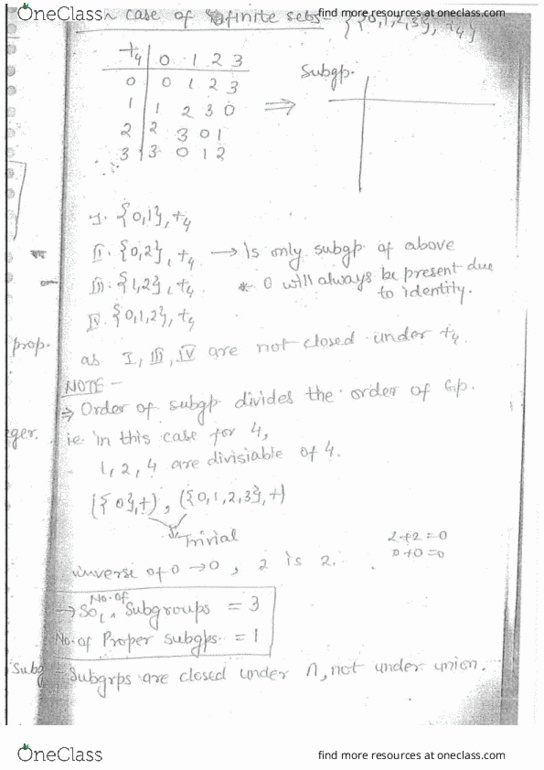 OneClass
find more resources at oneclass.com
case of finite sets - {{0,1,2,3}, +₄}
+₄ | 0 1 2 3
0 | 0 1 2 3
1 | 1 2 3 0
2 | 2 3 0 1
3 | 3 0 1 2
⇒
Subgp.
I. {0,1}, +₄
II. {0,2}, +₄ → Is only subgp of above
III. {1,2}, +₄ * 0 will always be present due
to identity.
IV. {0,1,2}, +₄
prop.
as I, III, IV are not closed under +₄.
NOTE -
⇒ Order of subgp divides the order of Gp.
ger. ie in this case for 4,
1, 2, 4 are divisiable of 4.
({0},+), ({0,1,2,3},+)
Trivial
2+2=0
0+0=0
inverse of 0 → 0, 2 is 2.
→ So, No. of Subgroups = 3
No. of Proper subgps = 1
Subg - Subgrps are closed under ∩, not under union.
OneClass
find more resources at oneclass.com